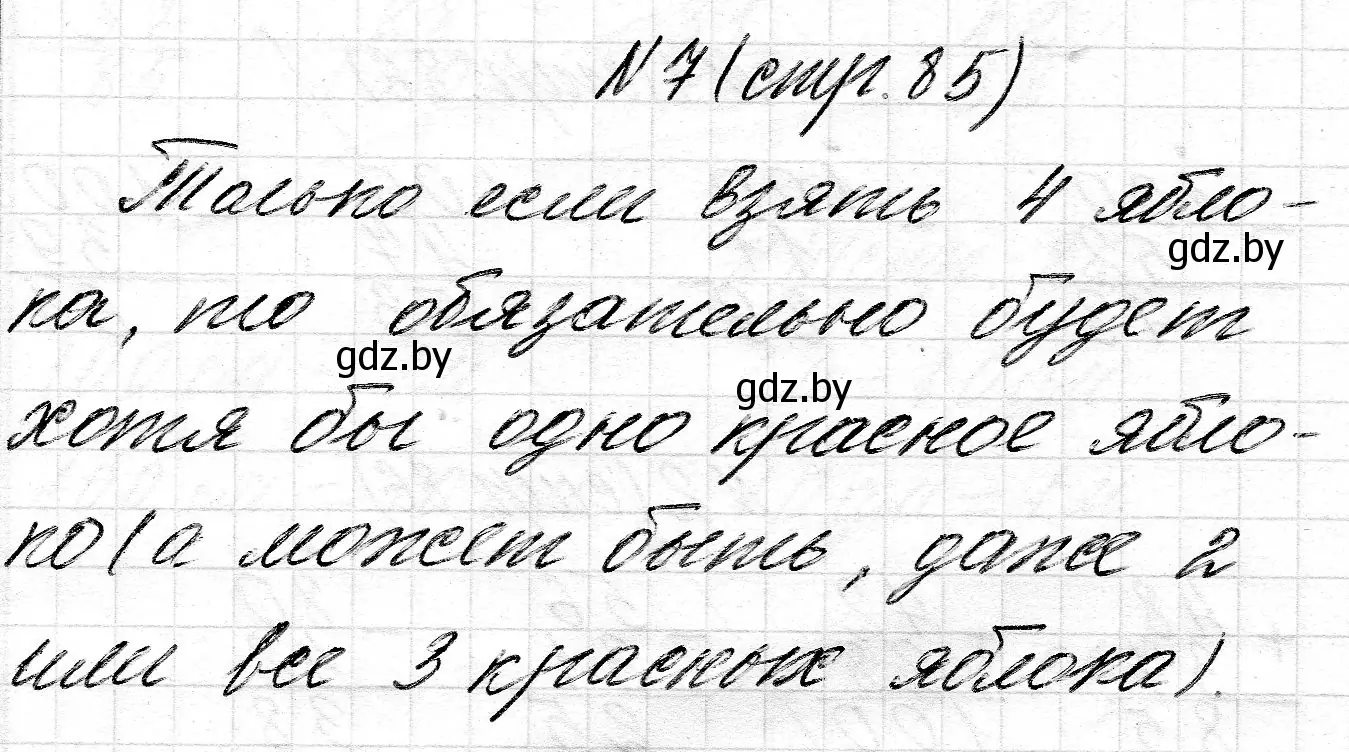 N 7 (стр. 85)
Только если взять 4 ябло-
gdz.by
ка, то обязательно будет
gdz.by
gdz.by
хотя бы одно красное ябло-
ко (а может быть, даже 2
или все 3 красных яблока).